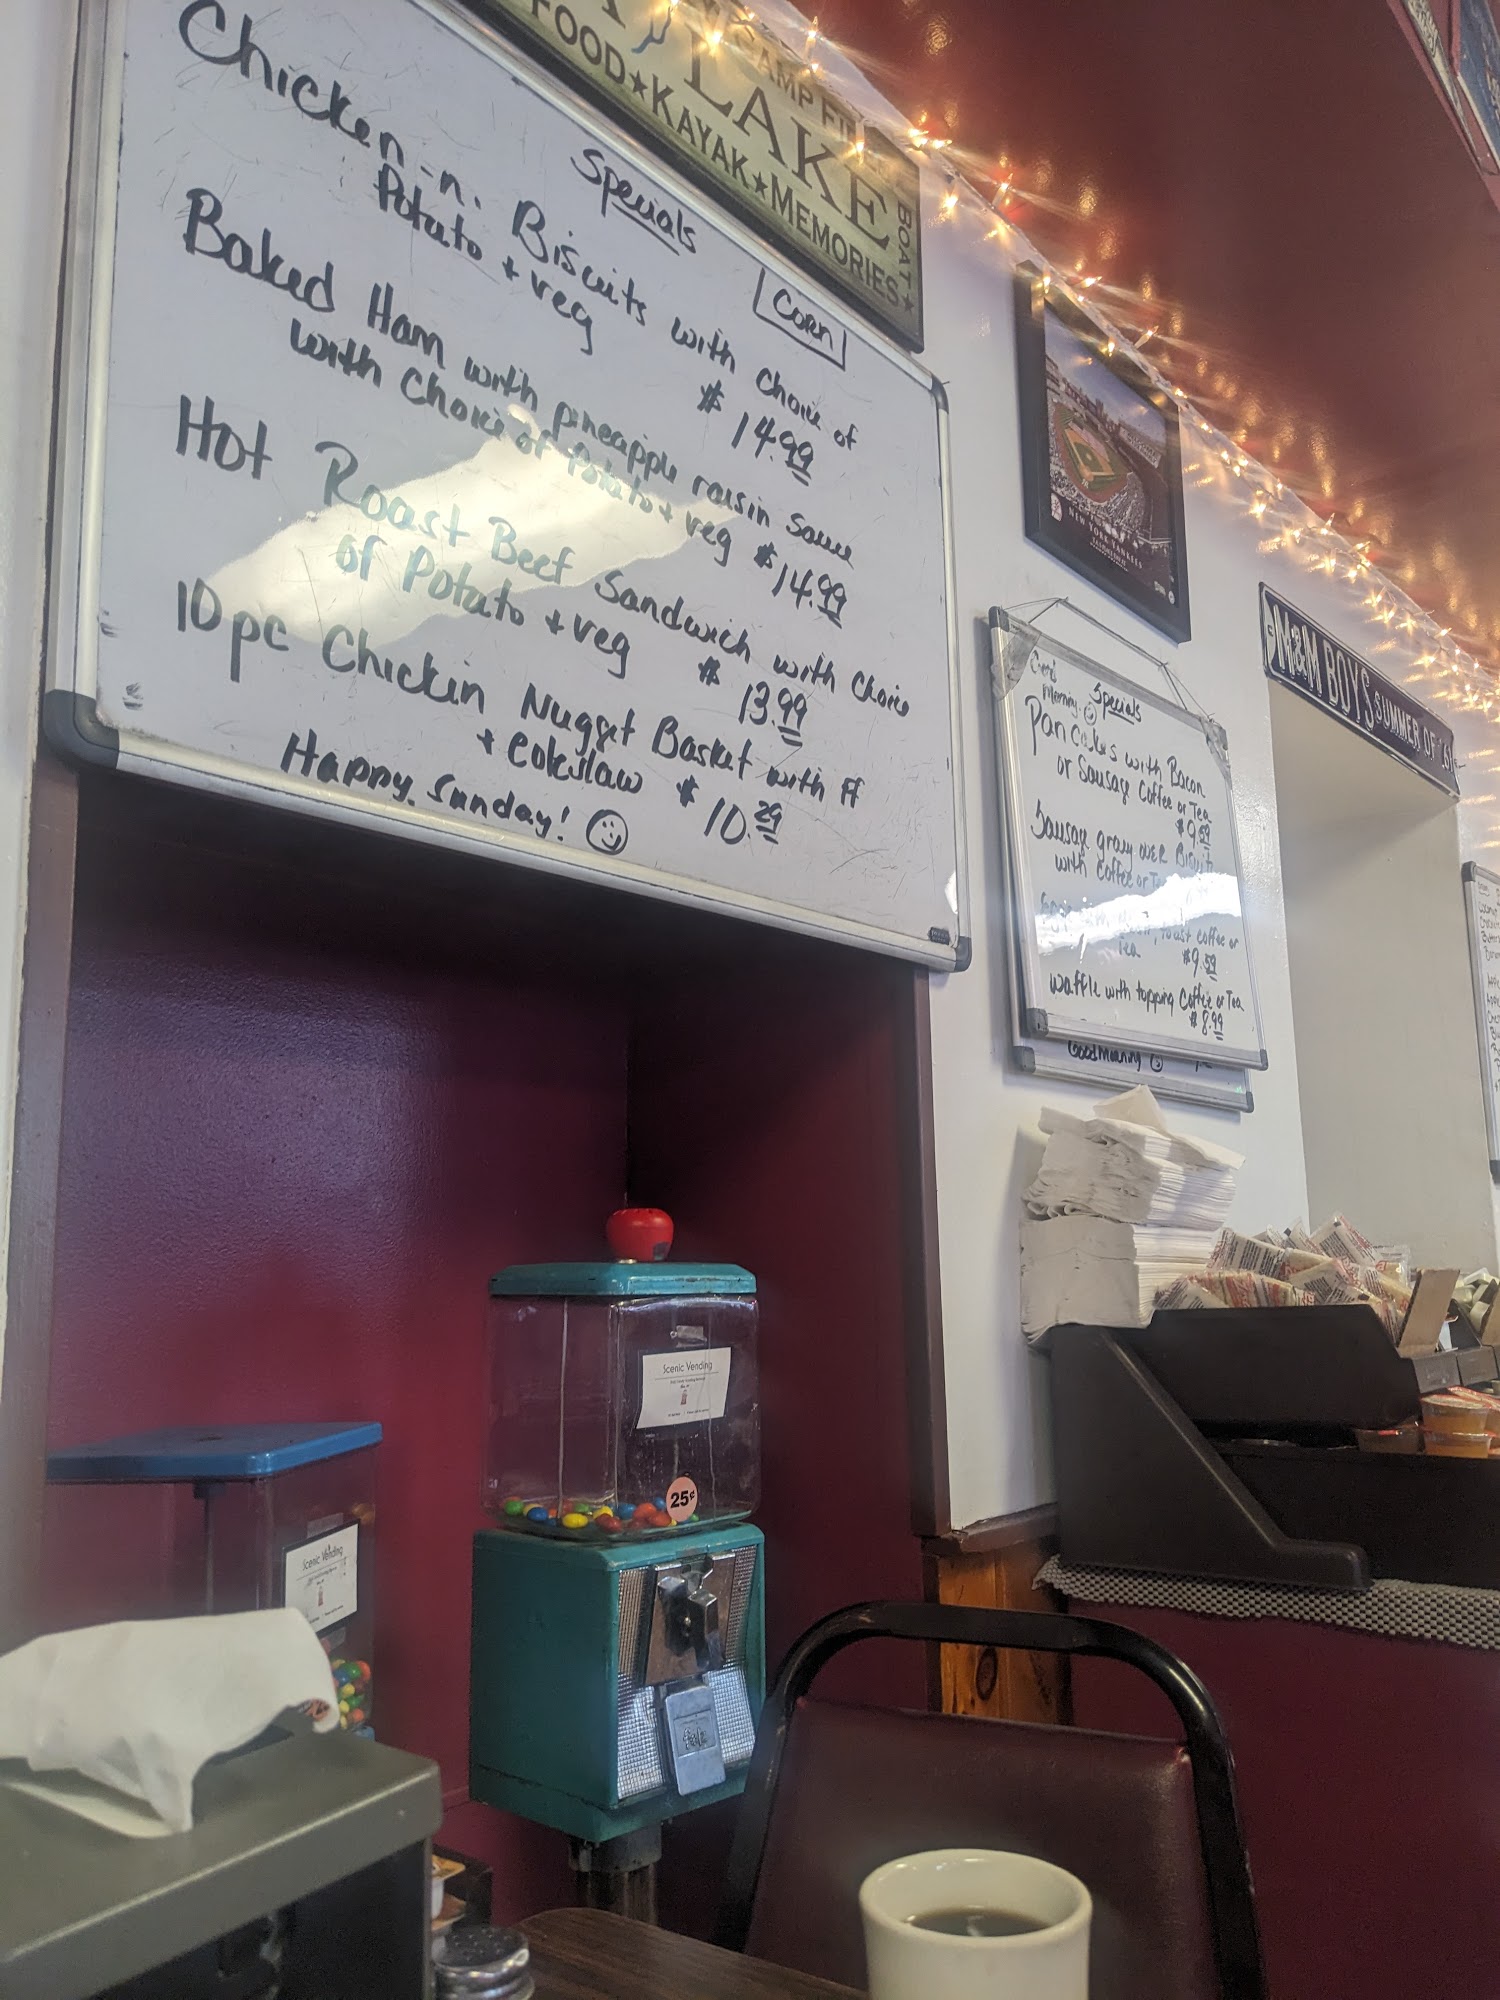 Specials
Corn
Chicken-n. Biscuits with choice of
Potato + veg $14.99
Baked Ham with pineapple raisin sauce
with Choice of Potato + veg $14.99
Hot Roast Beef Sandwich with choice
of Potato + veg $13.99
10 pc Chickin Nugget Basket with FF
+ Coleslaw $10.29
Happy Sunday!
LAKE
CAMP FIRE
BOAT
FOOD★KAYAK★MEMORIES★
NEW YORK YANKEES
M&M BOYS SUMMER OF '61
Good
Morning
Specials
Pancakes with Bacon
or Sausage Coffee or Tea
$9.59
Sausage gravy over Biscuit
with Coffee or Tea
toast coffee or
Tea $9.59
Waffle with topping Coffee or Tea
$8.99
Good Morning
Scenic Vending
25¢
Scenic Vending